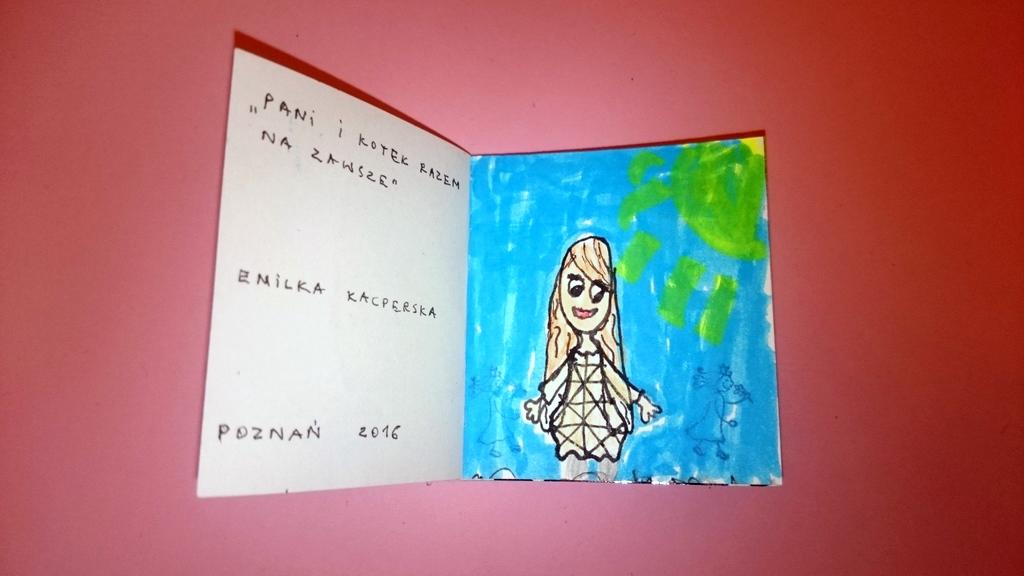 „PANi i KOTEK RAZEM
NA ZAWSZE"
EMiLKA KACPERSKA
POZNAŃ 2016